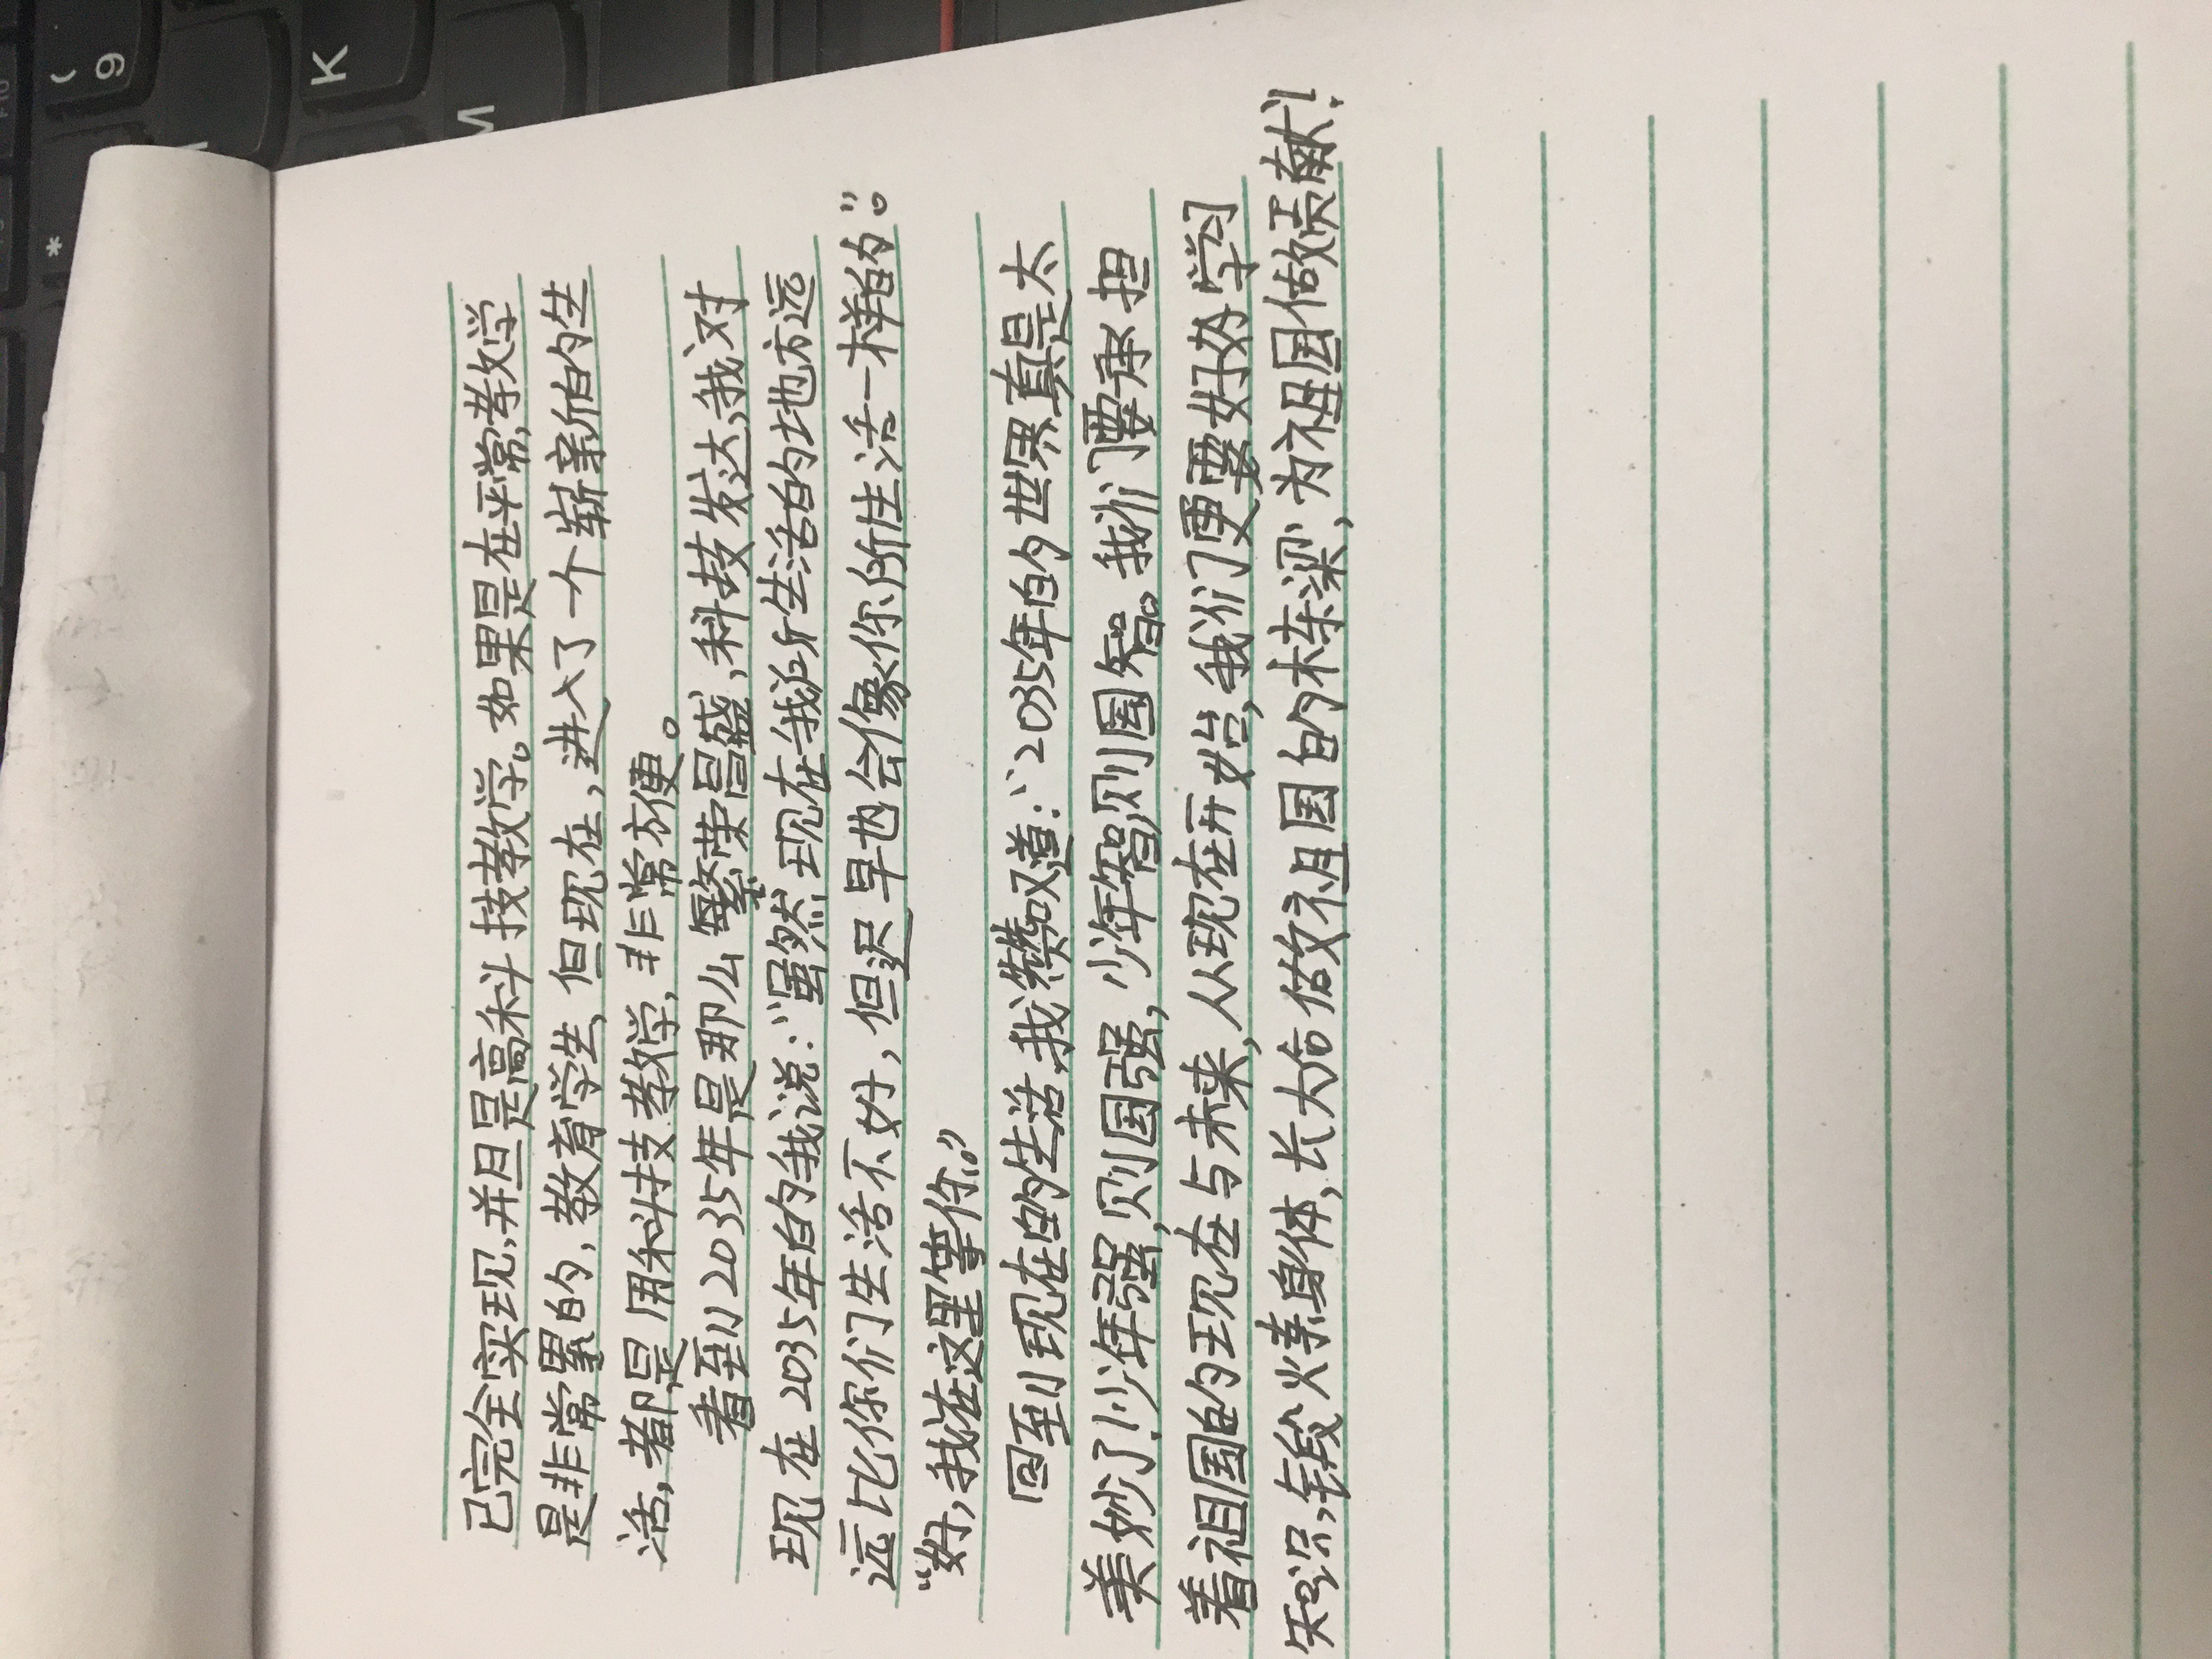 已完全实现,并且是高科技教学。如果是在平常,教学
是非常累的,教育学生,但现在,进入了一个崭新的生
活,都是用科技教学,非常方便。
看到2035年是那么繁荣昌盛,科技发达,我对
现在2035年的我说:“虽然现在我所生活的地方远
远比你们生活不好,但迟早也会像你所生活一样的”。
“好,我在这里等你。”
回到现在的生活,我赞叹道:“2035年的世界真是太
美妙了!少年强,则国强,少年智,则国智。我们要承担
着祖国的现在与未来,从现在开始,我们更要好好学习
知识,锻炼身体,长大后做祖国的栋梁,为祖国做贡献!
9
(
K
M
*